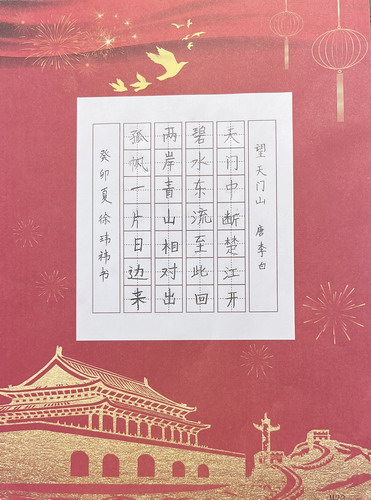 望天门山 唐李白
天门中断楚江开
碧水东流至此回
两岸青山相对出
孤帆一片日边来
癸卯夏徐玮祎书